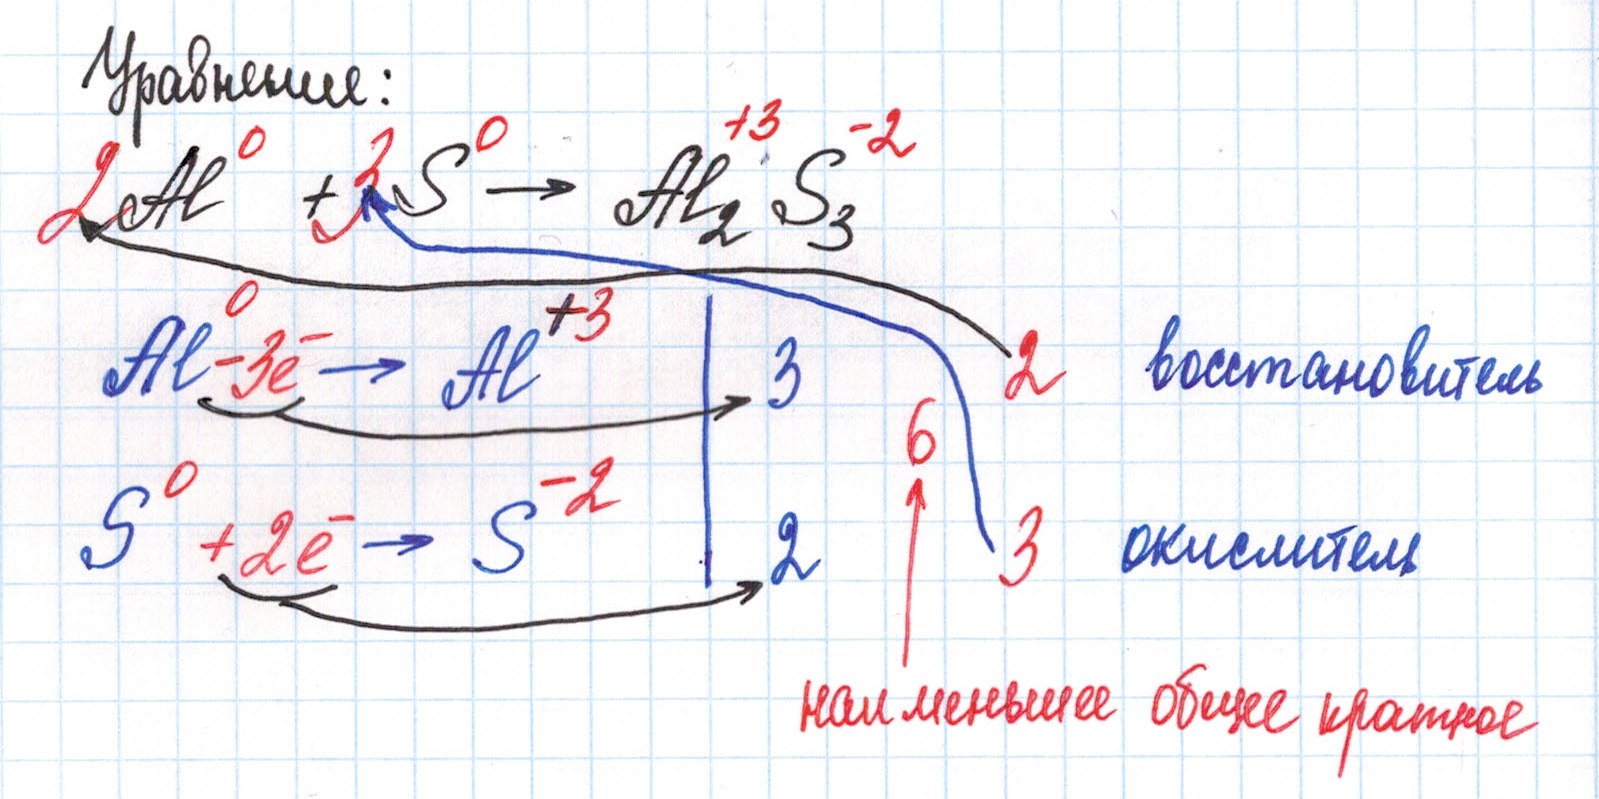 Уравнение:
2Al⁰ + 3S⁰ → Al₂⁺³S₃⁻²
Al⁰ -3e⁻ → Al⁺³ | 3 2 восстановитель
6
S⁰ +2e⁻ → S⁻² | 2 3 окислитель
наименьшее общее кратное